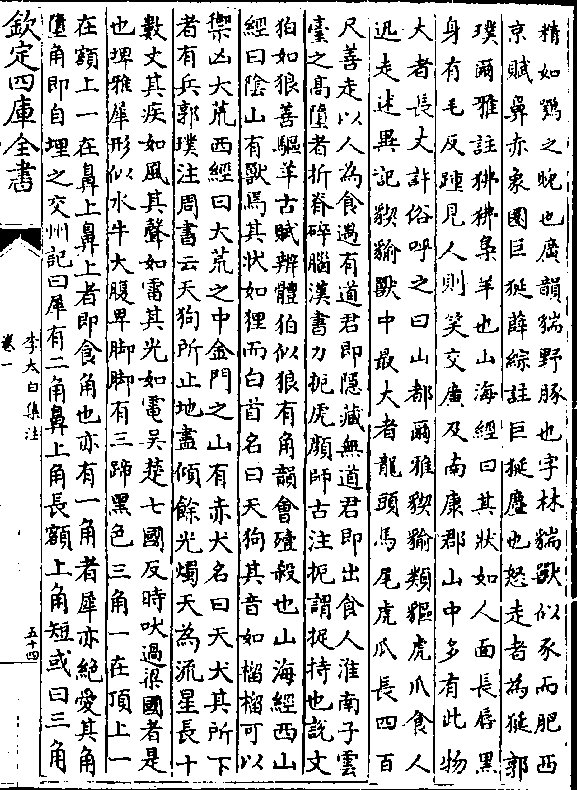 精如鷄之晚也廣韻猯野豚也字林猯獸似豕而肥西
京賦鼻赤象圈巨狿薛綜註巨狿麈也怒走者為狿郭
璞爾雅註狒狒梟羊也山海經曰其狀如人面長唇黑
身有毛反踵見人則笑交廣及南康郡山中多有此物
大者長丈許俗呼之曰山都爾雅猰㺄類貙虎爪食人
迅走述異記猰㺄獸中最大者龍頭馬尾虎爪長四百
尺善走以人為食遇有道君即隱藏無道君即出食人淮南子雲
臺之高墮者折脊碎腦漢書力扼虎顔師古注扼謂捉持也說文
狛如狼善驅羊古賦辨體狛似狼有角韻會殪殺也山海經西山
經曰陰山有獸焉其狀如狸而白首名曰天狗其音如榴榴可以
禦凶大荒西經曰大荒之中金門之山有赤犬名曰天犬其所下
者有兵郭璞注周書云天狗所止地盡傾餘光燭天為流星長十
數丈其疾如風其聲如雷其光如電吳楚七國反時吠過梁國者是
也埤雅犀形似水牛大腹卑脚脚有三蹄黑色三角一在頂上一
在額上一在鼻上鼻上者即食角也亦有一角者犀亦絕愛其角
墮角即自埋之交州記曰犀有二角鼻上角長額上角短或曰三角
欽定四庫全書
李太白集注
卷一
五十四